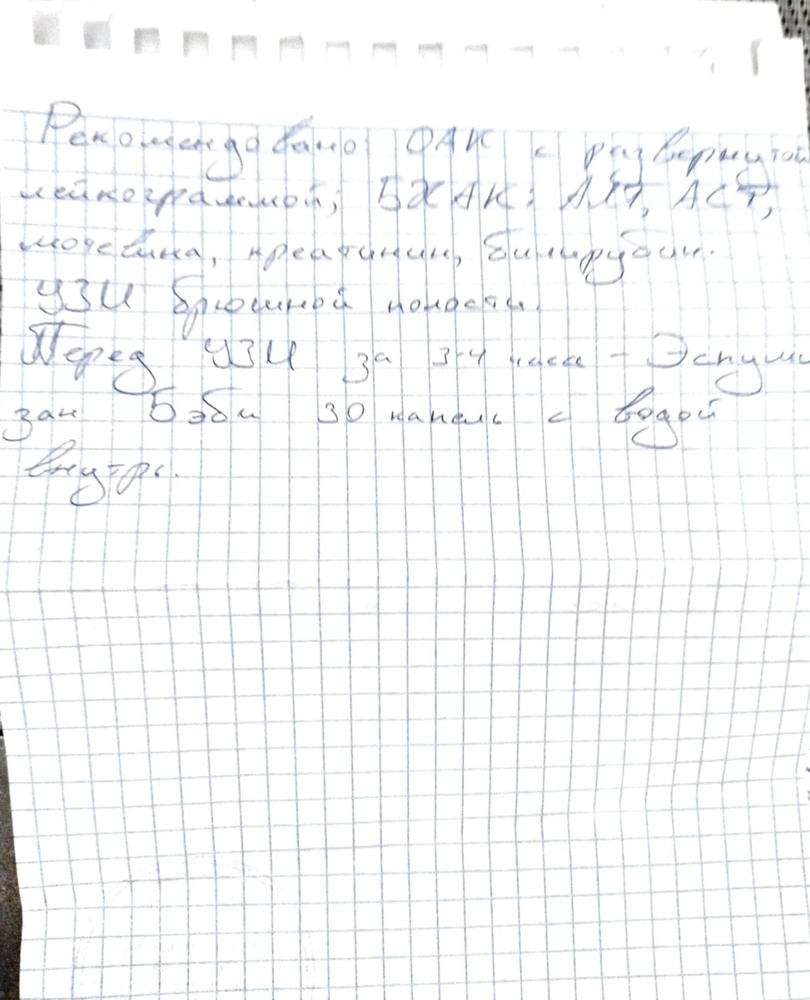 Рекомендовано: ОАК с развернутой
лейкограммой; БХАК: АЛТ, АСТ,
мочевина, креатинин, билирубин.
УЗИ брюшной полости.
Перед УЗИ за 3-4 часа - Эспуми
зан Бэби 30 капель с водой
внутрь.